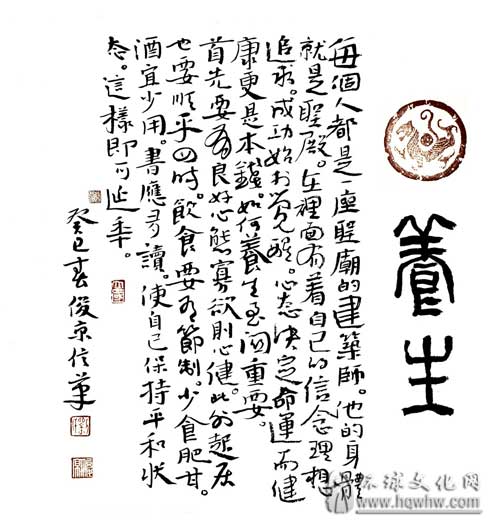 養生
每個人都是一座聖廟的建築師。他的身體
就是聖殿。在裡面有着自己的信念理想
追求。成功始於覺醒。心态決定命運而健
康更是本錢。如何養生至關重要。
首先要有良好心態寡欲則心健。此外起居
也要順乎四時。飲食要有節制。少食肥甘。
酒宜少用。書應多讀。使自己保持平和狀
态。這樣即可延年。
癸巳春俊京信筆
环球文化网
www.hqwhw.com